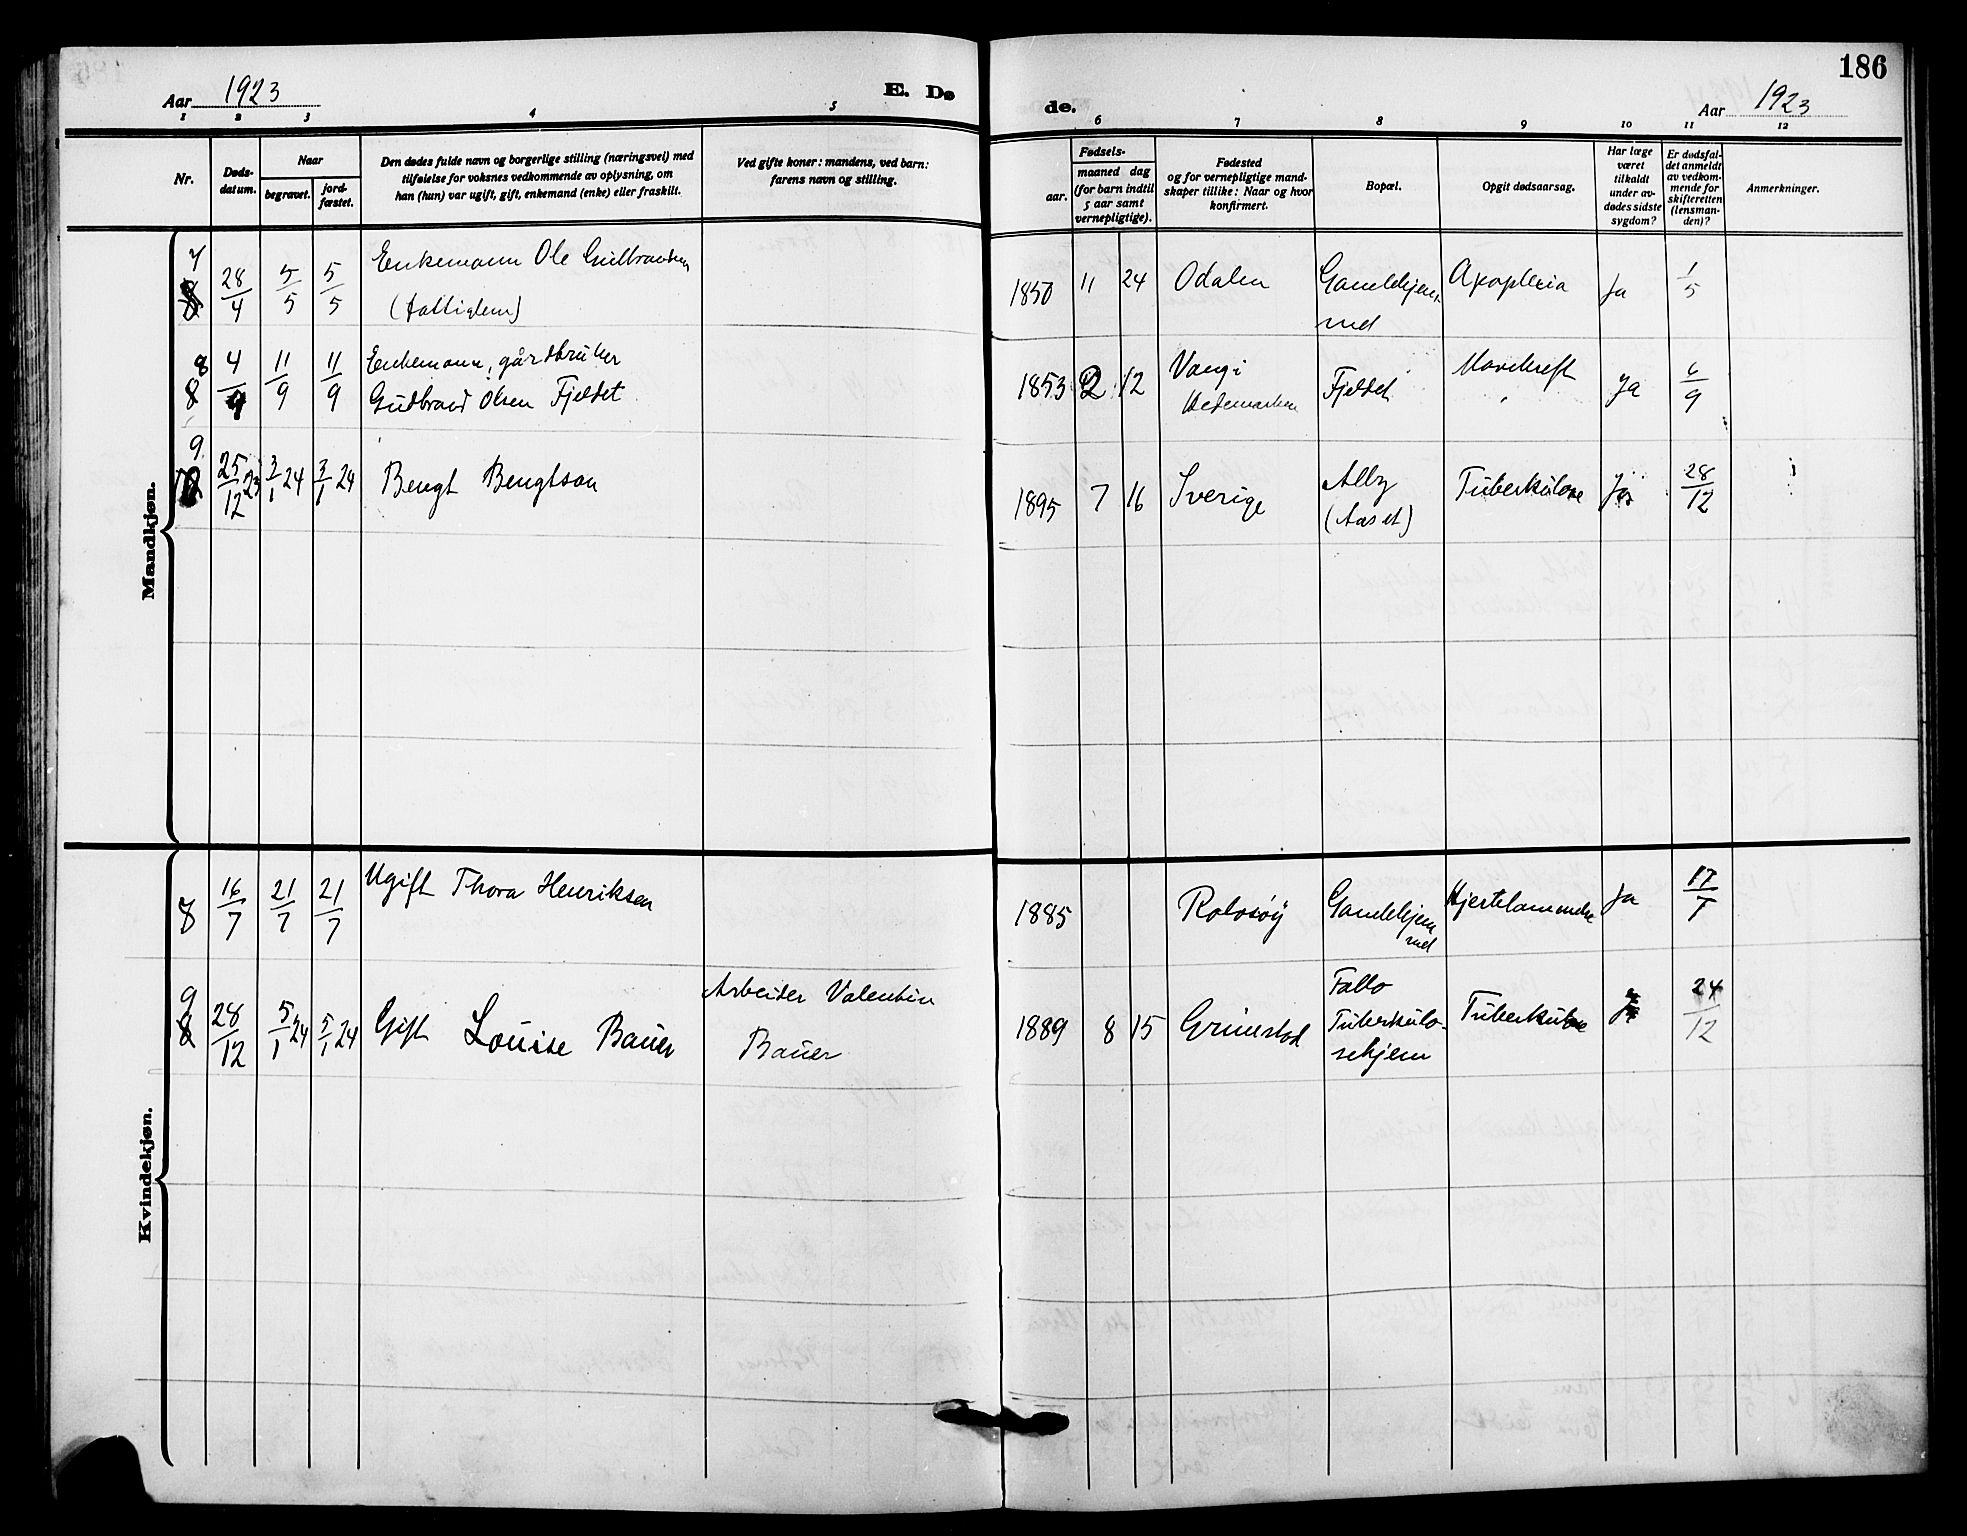 186
Aar 1923
E. Dø
de.
Aar 1923
1 2 3 4 5 6 7 8 9 10 11 12
Nr.
Døds-
datum.
Naar
begravet.
jord-
fæstet.
Den dødes fulde navn og borgerlige stilling (næringsvei) med
tilføielse for voksnes vedkommende av oplysning, om
han (hun) var ugift, gift, enkemand (enke) eller fraskilt.
Ved gifte koner: mandens, ved barn:
farens navn og stilling.
Fødsels-
aar.
maaned dag
(for barn indtil
5 aar samt
vernepligtige).
Fødested
og for vernepligtige mand-
skaper tillike: Naar og hvor
konfirmert.
Bopæl.
Opgit dødsaarsag.
Har læge
været
tilkaldt
under av-
dødes sidste
sygdom?
Er dødsfal-
det anmeldt
av vedkom-
mende for
skifteretten
(lensman-
den)?
Anmerkninger.
Mandkjøn.
7 28/4 5/5 5/5 Enkemann Ole Gulbrandsen
(fattiglem)
1850 11 24 Odalen Gamlehjem- Apoplexia Ja 1/5
met
8 4/9 11/9 11/9 Enkemann, gårdbruker
Gudbrand Olsen Fjeldet
1853 2 12 Vang i Fjeldet Mavekreft Ja 6/9
Hedemarken
9 25/12 23 3/1 24 3/1 24 Bengt Bengtson
1895 7 16 Sverige Alby Tuberkulose Ja 28/12
(Aaset)
Kvindekjøn.
8 16/7 21/7 21/7 Ugift Thora Henriksen
1885 Rolvsöy Gamlehjem Hjertelammelse Ja 17/7
met
9 28/12 5/1 24 5/1 24 Gift Louise Bauer Arbeider Valentin
Bauer
1889 8 15 Grimstad Follo Tuberkulose Ja 24/12
Tuberkulo-
sehjem